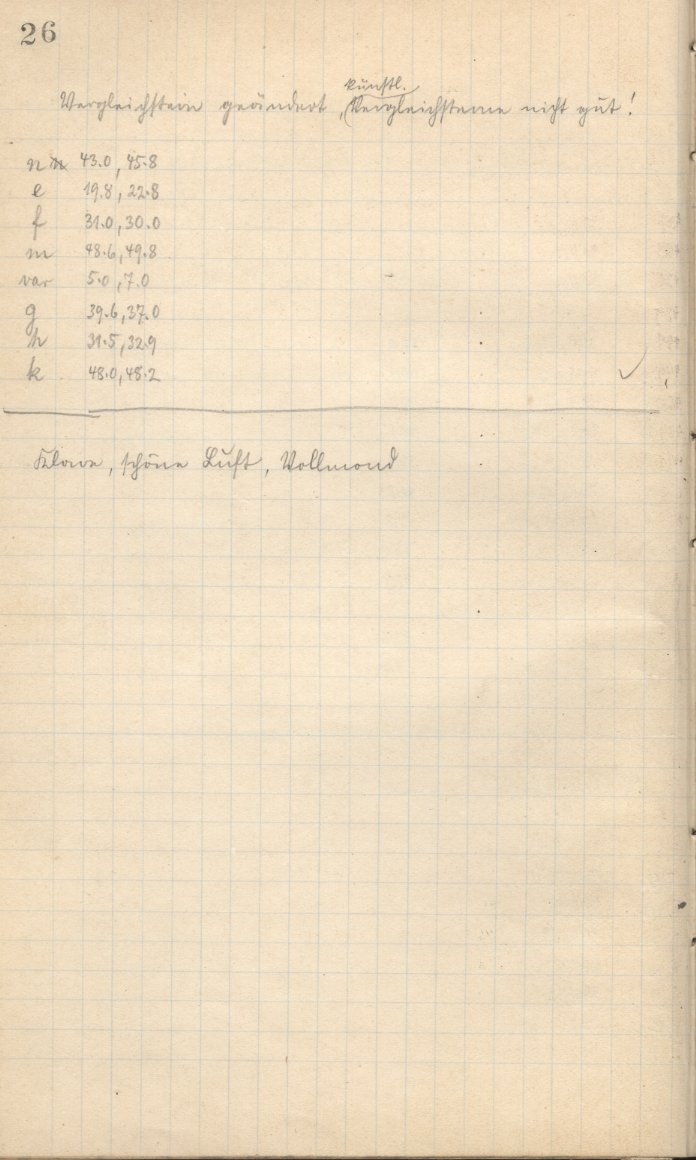 26
künstl.
Vergleichstern geändert, Vergleichsterne nicht gut!
n 43.0, 45.8
e 19.8, 22.8
f 31.0, 30.0
m 48.6, 49.8
var 5.0, 7.0
g 39.6, 37.0
h 31.5, 32.9
k 48.0, 48.2
Klare, schöne Luft, Vollmond